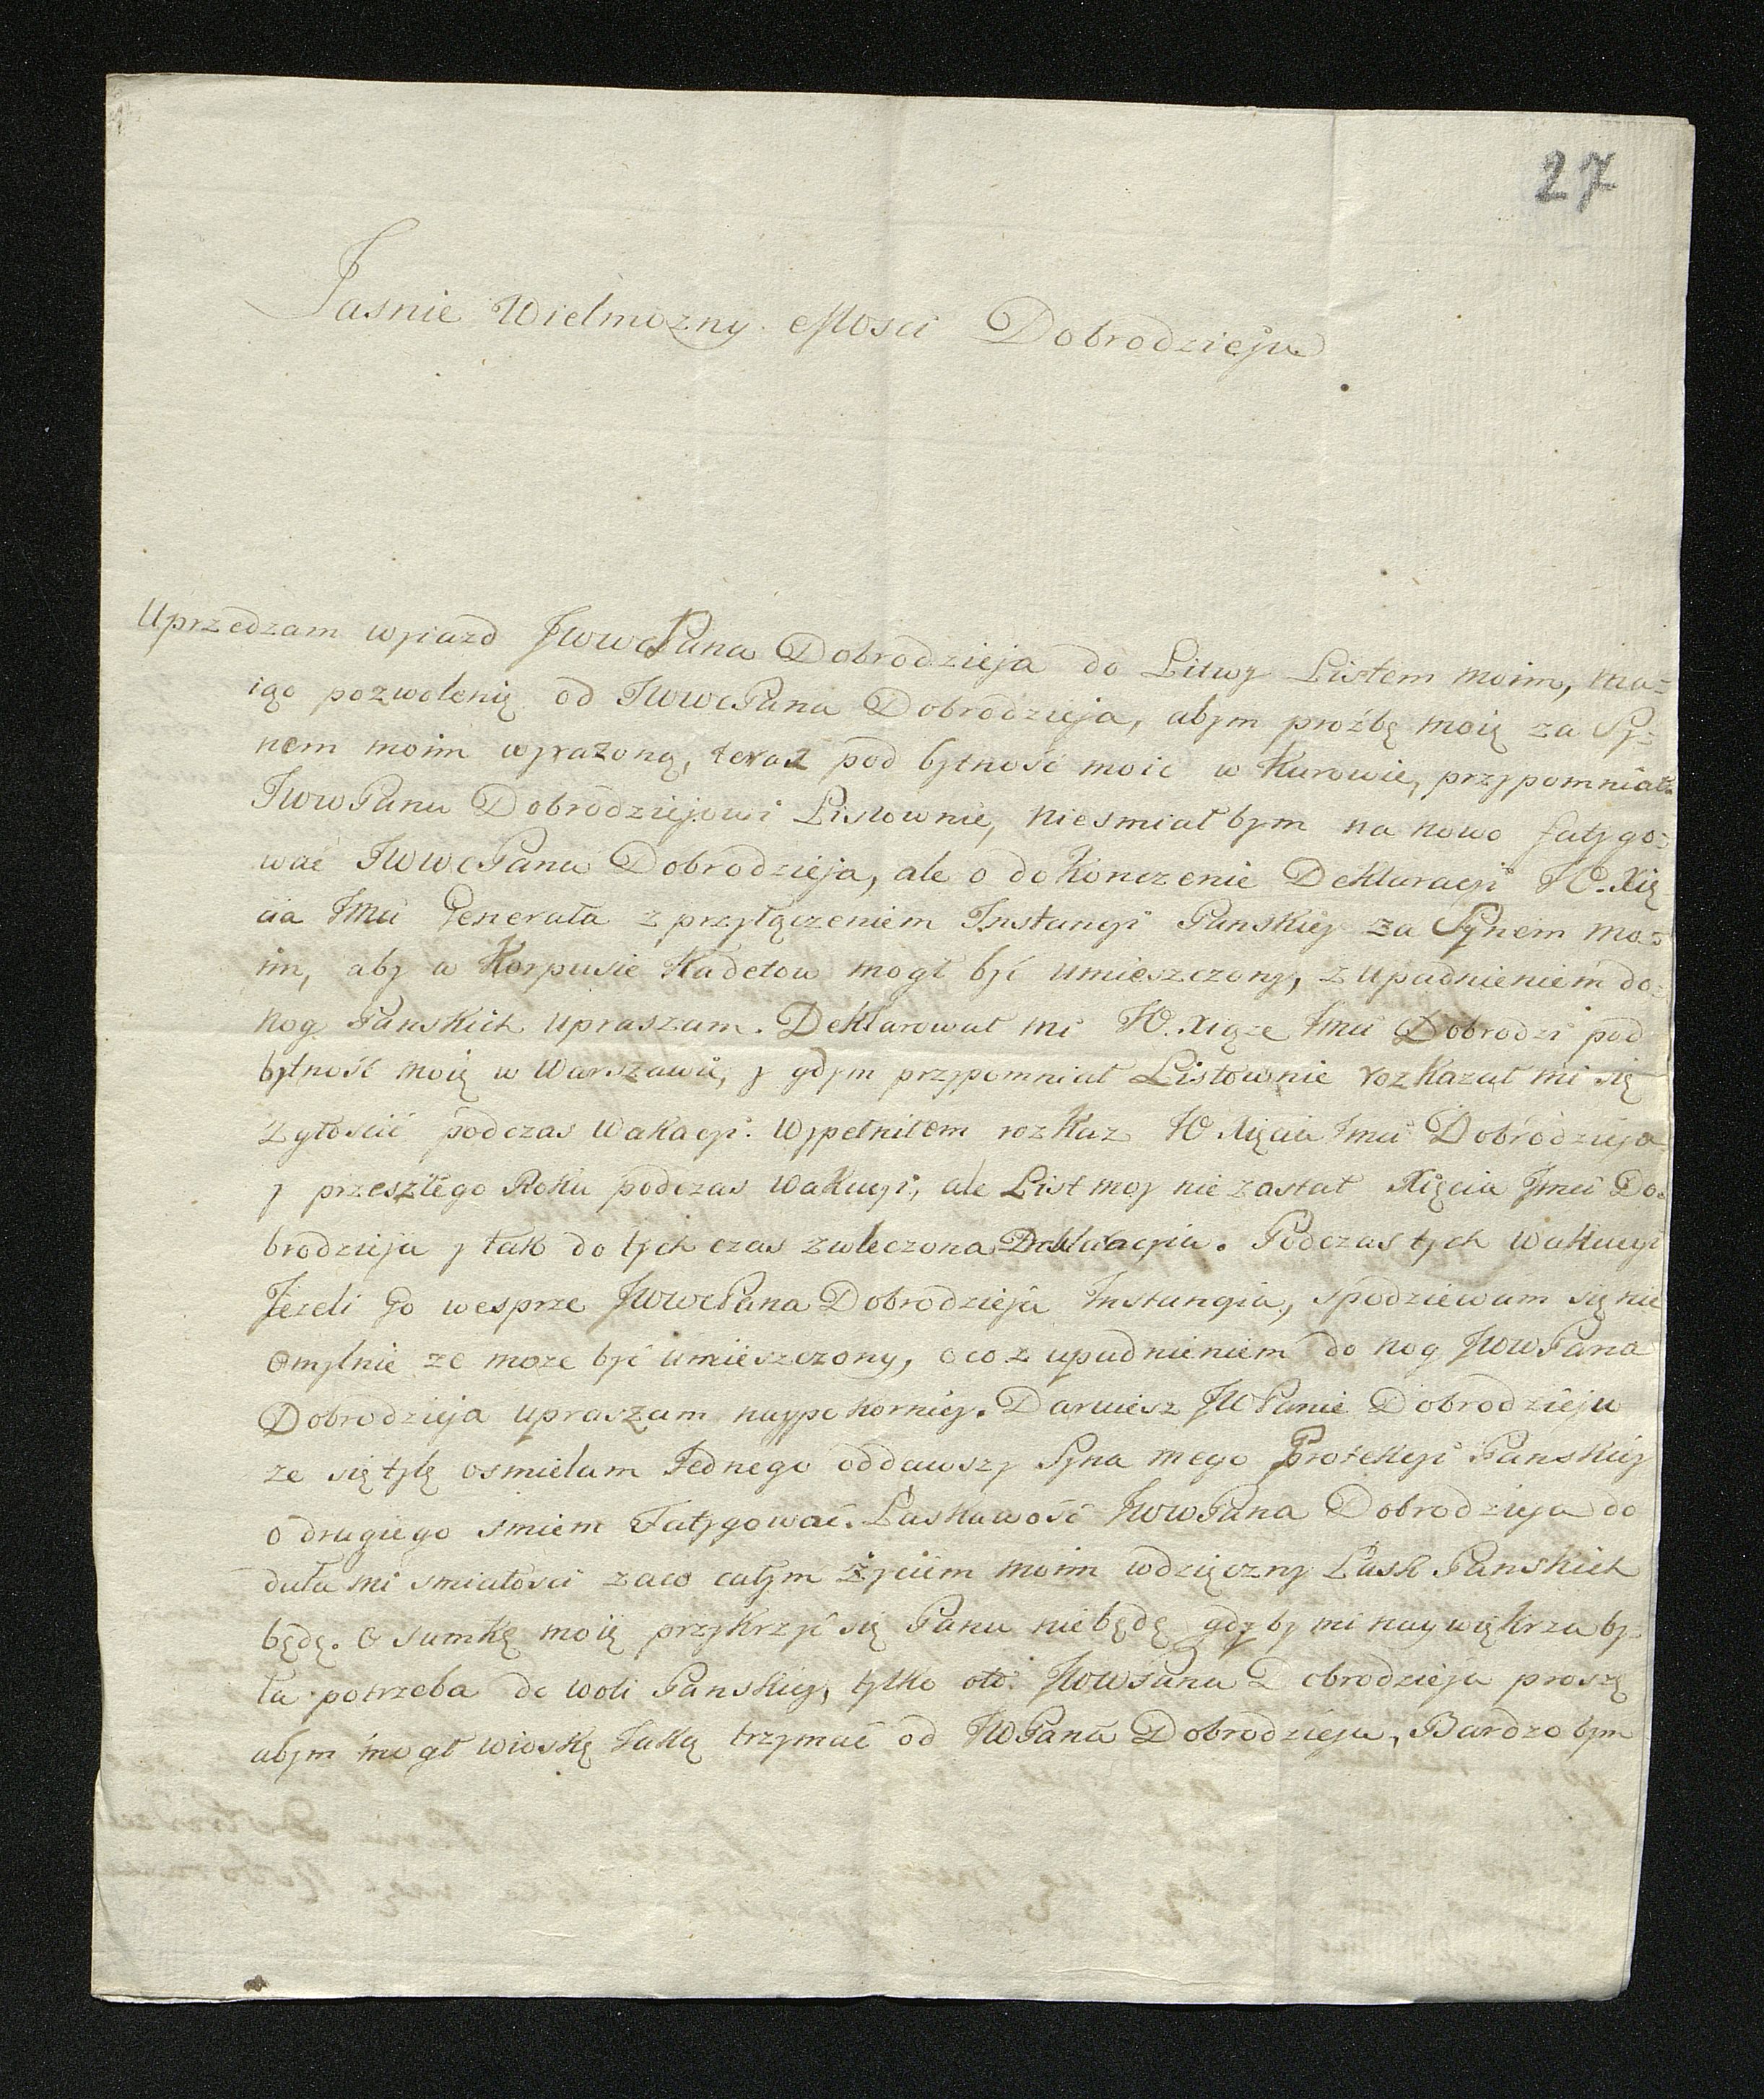 27
Jasnie Wielmozny Mosci Dobrodzieju
Uprzedzam wyiazd JWWcPana Dobrodzieja do Litwy Listem moim, ma=
iąc pozwolenię od JWWcPana Dobrodzieja, abym proźbę moię za Sy=
nem moim wyrażoną, teraz pod bytność moię w Kurowie, przypomniał
JWWPanu Dobrodziejowi Listownie, niesmiał bym na nowo fatygo=
wać JWWcPana Dobrodzieja, ale o dokonczenie Deklaracyi JO. Xię
cia Jmci Generała z przyłączeniem Instancyi Panskiey za Synem mo=
im, aby w Korpusie Kadetow mogł być umieszczony, z upadnieniem do=
nog Panskich upraszam. Deklarował mi JO. Xiąze Jmci Dobrodzi pod
bytność moię w Warszawie, y gdym przypomniał Listownie rozkazał mi się
zgłosić podczas Wakacyi. Wypełniłem rozkaz JO Xięcia Jmci Dobrodzieja
y przeszłego Roku podczas Wakacyi, ale List moy nie zastał Xięcia Jmci Do=
brodzieja y tak do tych czas zwleczona Deklaracyia. Podczas tych Wakacyi
Jezeli Go wesprze JWWcPana Dobrodzieja Instancyia, spodziewam się nie
omylnie ze moze być umieszczony, oco z upadnieniem do nog JWWPana
Dobrodzieja upraszam naypokorniey. Daruiesz JWPanie Dobrodzieju
ze się tylę osmielam Jednego oddawszy Syna mego Protekcyi Panskiey
o drugiego smiem Fatygować. Łaskawość JWWPana Dobrodzieja do
dała mi smiałosci zaco całym życiem moim wdzięczny Łask Panskich
będę. O sumkę moię przykrzyć się Panu niebędę gdyby mi naywiększa by=
ła potrzeba do woli Panskiey, tylko oto JWWPana Dobrodzieja proszę
abym mogł wioskę Jaką trzymać od JWPana Dobrodzieja, Bardzo bym